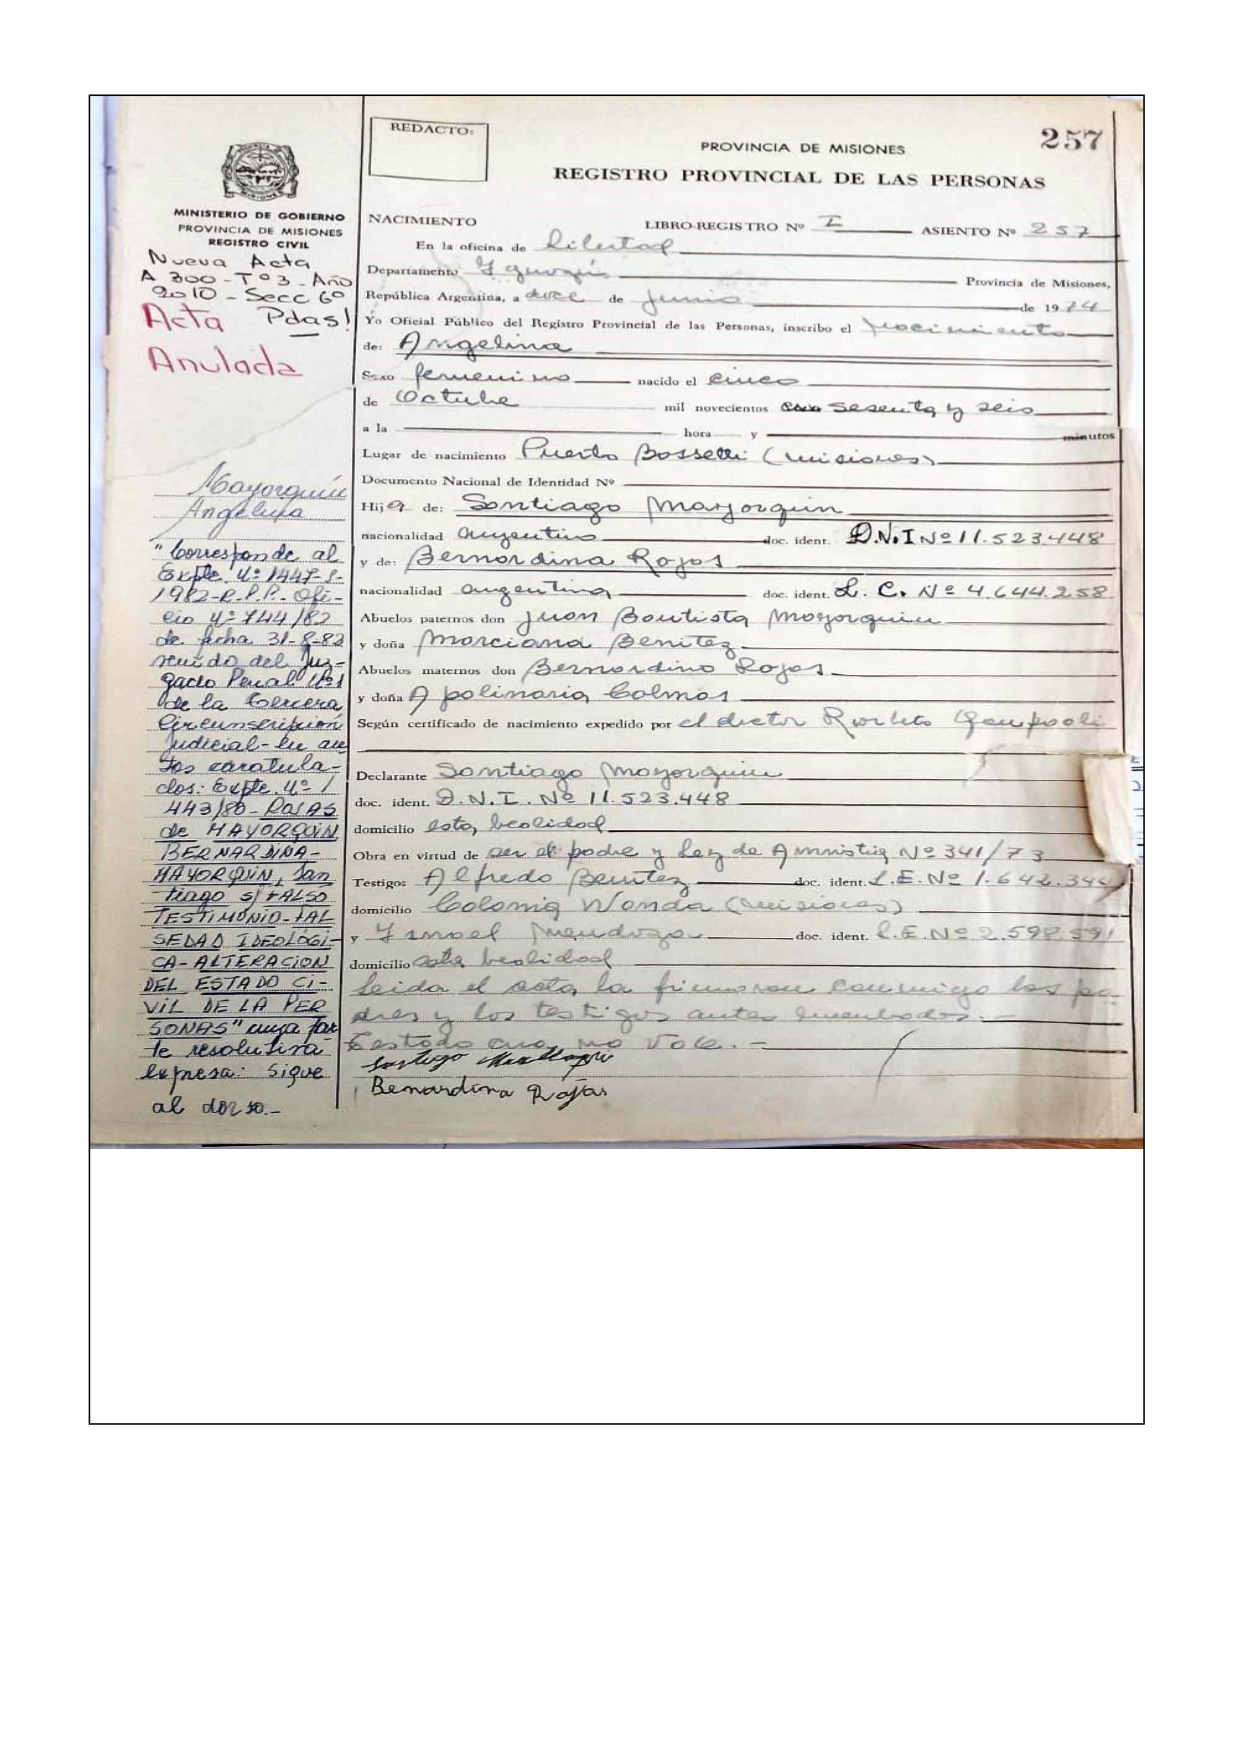 REDACTO:
257
PROVINCIA DE MISIONES
REGISTRO PROVINCIAL DE LAS PERSONAS
MISIONES
MINISTERIO DE GOBIERNO
PROVINCIA DE MISIONES
REGISTRO CIVIL
Nueva Acta
A 300 - Tº 3 - Año
2010 - Secc 6º
Pdas!
Acta
Anulada
Mayorquin
Angelina
"Corresponde al
Expte. Nº 1447-S-
1982-R.P.P. Ofi-
cio Nº 744/82
de fecha 31-8-82
venido del Juz-
gado Penal Nº1
de la tercera
Circunscripción
judicial - en au
tos caratula-
dos: Expte. Nº 1
443/80 - ROJAS
de MAYORQUIN
BERNARDINA -
MAYORQUIN, San
tiago s/FALSO
TESTIMONIO - FAL
SEDAD IDEOLOGI-
CA - ALTERACION
DEL ESTADO CI-
VIL DE LA PER
SONAS" cuya par
te resolutiva
expresa: Sigue
al dorso.-
NACIMIENTO LIBRO-REGISTRO Nº I ASIENTO Nº 257
En la oficina de Libertad
Departamento Iguazú Provincia de Misiones,
República Argentina, a doce de junio de 1974
Yo Oficial Público del Registro Provincial de las Personas, inscribo el nacimiento
de: Angelina
Sexo femenino nacido el cinco
de Octubre mil novecientos sesenta y seis
a la hora y minutos
Lugar de nacimiento Puerto Bossetti (Misiones)
Documento Nacional de Identidad Nº
Hija de: Santiago Mayorquin
nacionalidad argentino doc. ident. D.N.I Nº 11.523.448
y de: Bernardina Rojas
nacionalidad argentina doc. ident. L. C. Nº 4.644.258
Abuelos paternos don Juan Bautista Mayorquin
y doña Marciana Benitez
Abuelos maternos don Bernardino Rojas
y doña Apolinaria Colmos
Según certificado de nacimiento expedido por el doctor
Declarante Santiago Mayorquin
doc. ident. D.N.I. Nº 11.523.448
domicilio esta localidad
Obra en virtud de ser el padre y Ley de Amnistia Nº 341/73
Testigos Alfredo Benitez doc. ident. L.E. Nº 1.642.344
domicilio Colonia Wanda (Misiones)
y Ismael Mendoza doc. ident. L.E. Nº 2.598.591
domicilio esta localidad
Leida el acta, la firmaron conmigo los pa-
dres y los testigos antes nombrados.-
Testado no vale.-
Santiago
Benardina Rojas